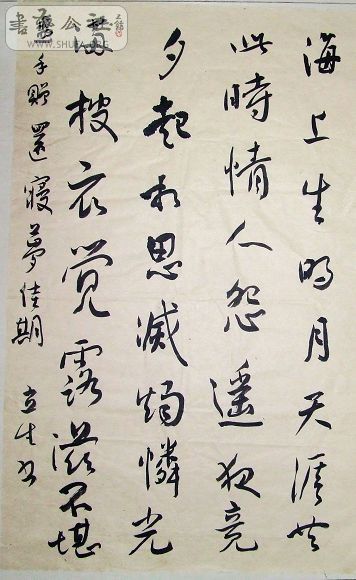 海上生明月天涯共
此時情人怨遥夜竟
夕起相思滅燭憐光
滿披衣覚露滋不堪
盈手贈還寢夢佳期
立生书
公社
WWW.SHUFA.ORG